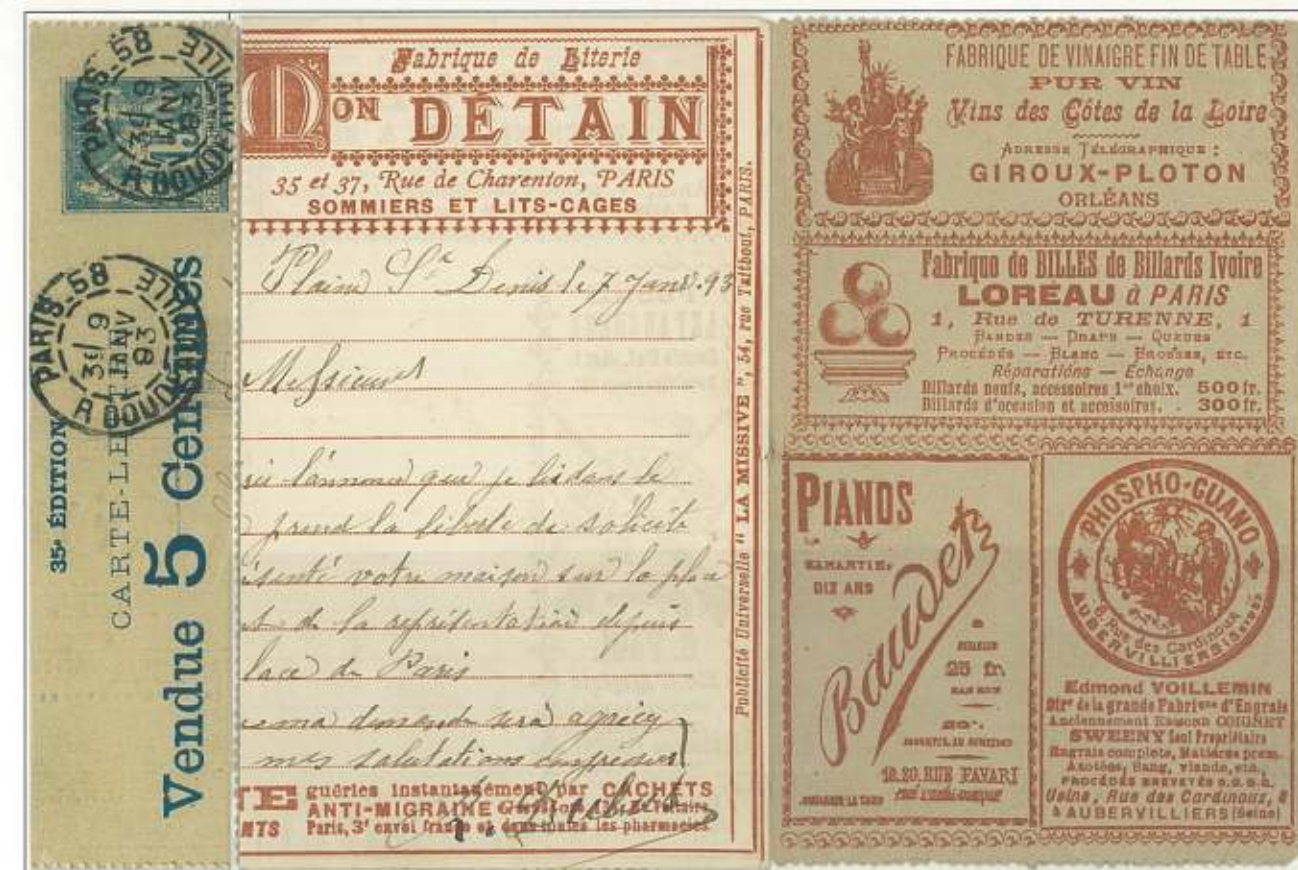 PARIS·58
3E/9
JANV
93
R DOUDEAUVILLE
15
PARIS·58
3E/9
JANV
93
R DOUDEAUVILLE
35e ÉDITION
CARTE-LETTRE
Vendue 5 Centimes
Fabrique de Literie
MON DÉTAIN
35 et 37, Rue de Charenton, PARIS
SOMMIERS ET LITS-CAGES
Plaine St Denis le 7 Janv. 93
Messieurs
l'annonce que je lis dans le
prend la liberté de solicité
votre maison sur la place
de la représentation depuis
lace de Paris
ma demande sera agréée
mes salutations empressées
TE guéries instantanément par CACHETS
ANTI-MIGRAINE
NTS Paris, 3f envoi franco et dans toutes les pharmacies
Publicité Universelle "LA MISSIVE", 54, rue Taitbout, PARIS.
FABRIQUE DE VINAIGRE FIN DE TABLE
PUR VIN
Vins des Côtes de la Loire
ADRESSE TÉLÉGRAPHIQUE :
GIROUX-PLOTON
ORLÉANS
Fabrique de BILLES de Billards Ivoire
LOREAU à PARIS
1, Rue de TURENNE, 1
BANDES — DRAPS — QUEUES
PROCÉDÉS — BLANC — BROSSES, ETC.
Réparations — Echange
Billards neufs, accessoires 1er choix. 500 fr.
Billards d'occasion et accessoires. . 300 fr.
PIANOS
GARANTIE,
DIX ANS
Baudet
25 fr
PAR MOIS
19.20. RUE FAVART
PHOSPHO-GUANO
8, Rue des Cardinoux
AUBERVILLIERS (Seine)
Edmond VOILLEMIN
Dirr de la grande Fabrique d'Engrais
Anciennement Edmond COIGNET
SWEENY Seul Propriétaire
Engrais complets, Matières prem.
Azotées, Sang, viande, etc.,
PROCÉDÉS BREVETÉS S.G.D.G.
Usine, Rue des Cardinoux, 8
à AUBERVILLIERS (Seine)